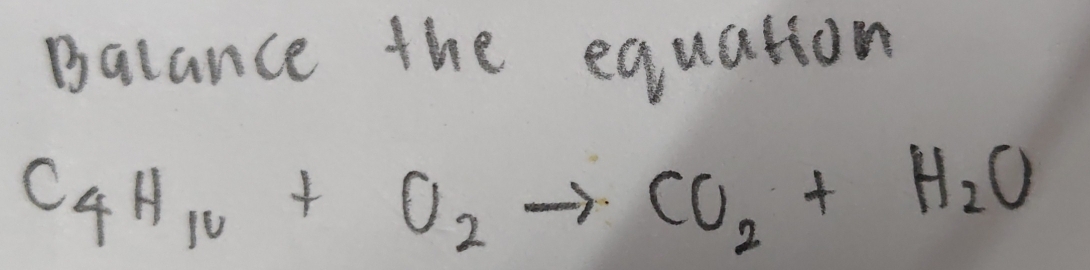 Balance the equation
C₄H₁₀ + O₂ → CO₂ + H₂O